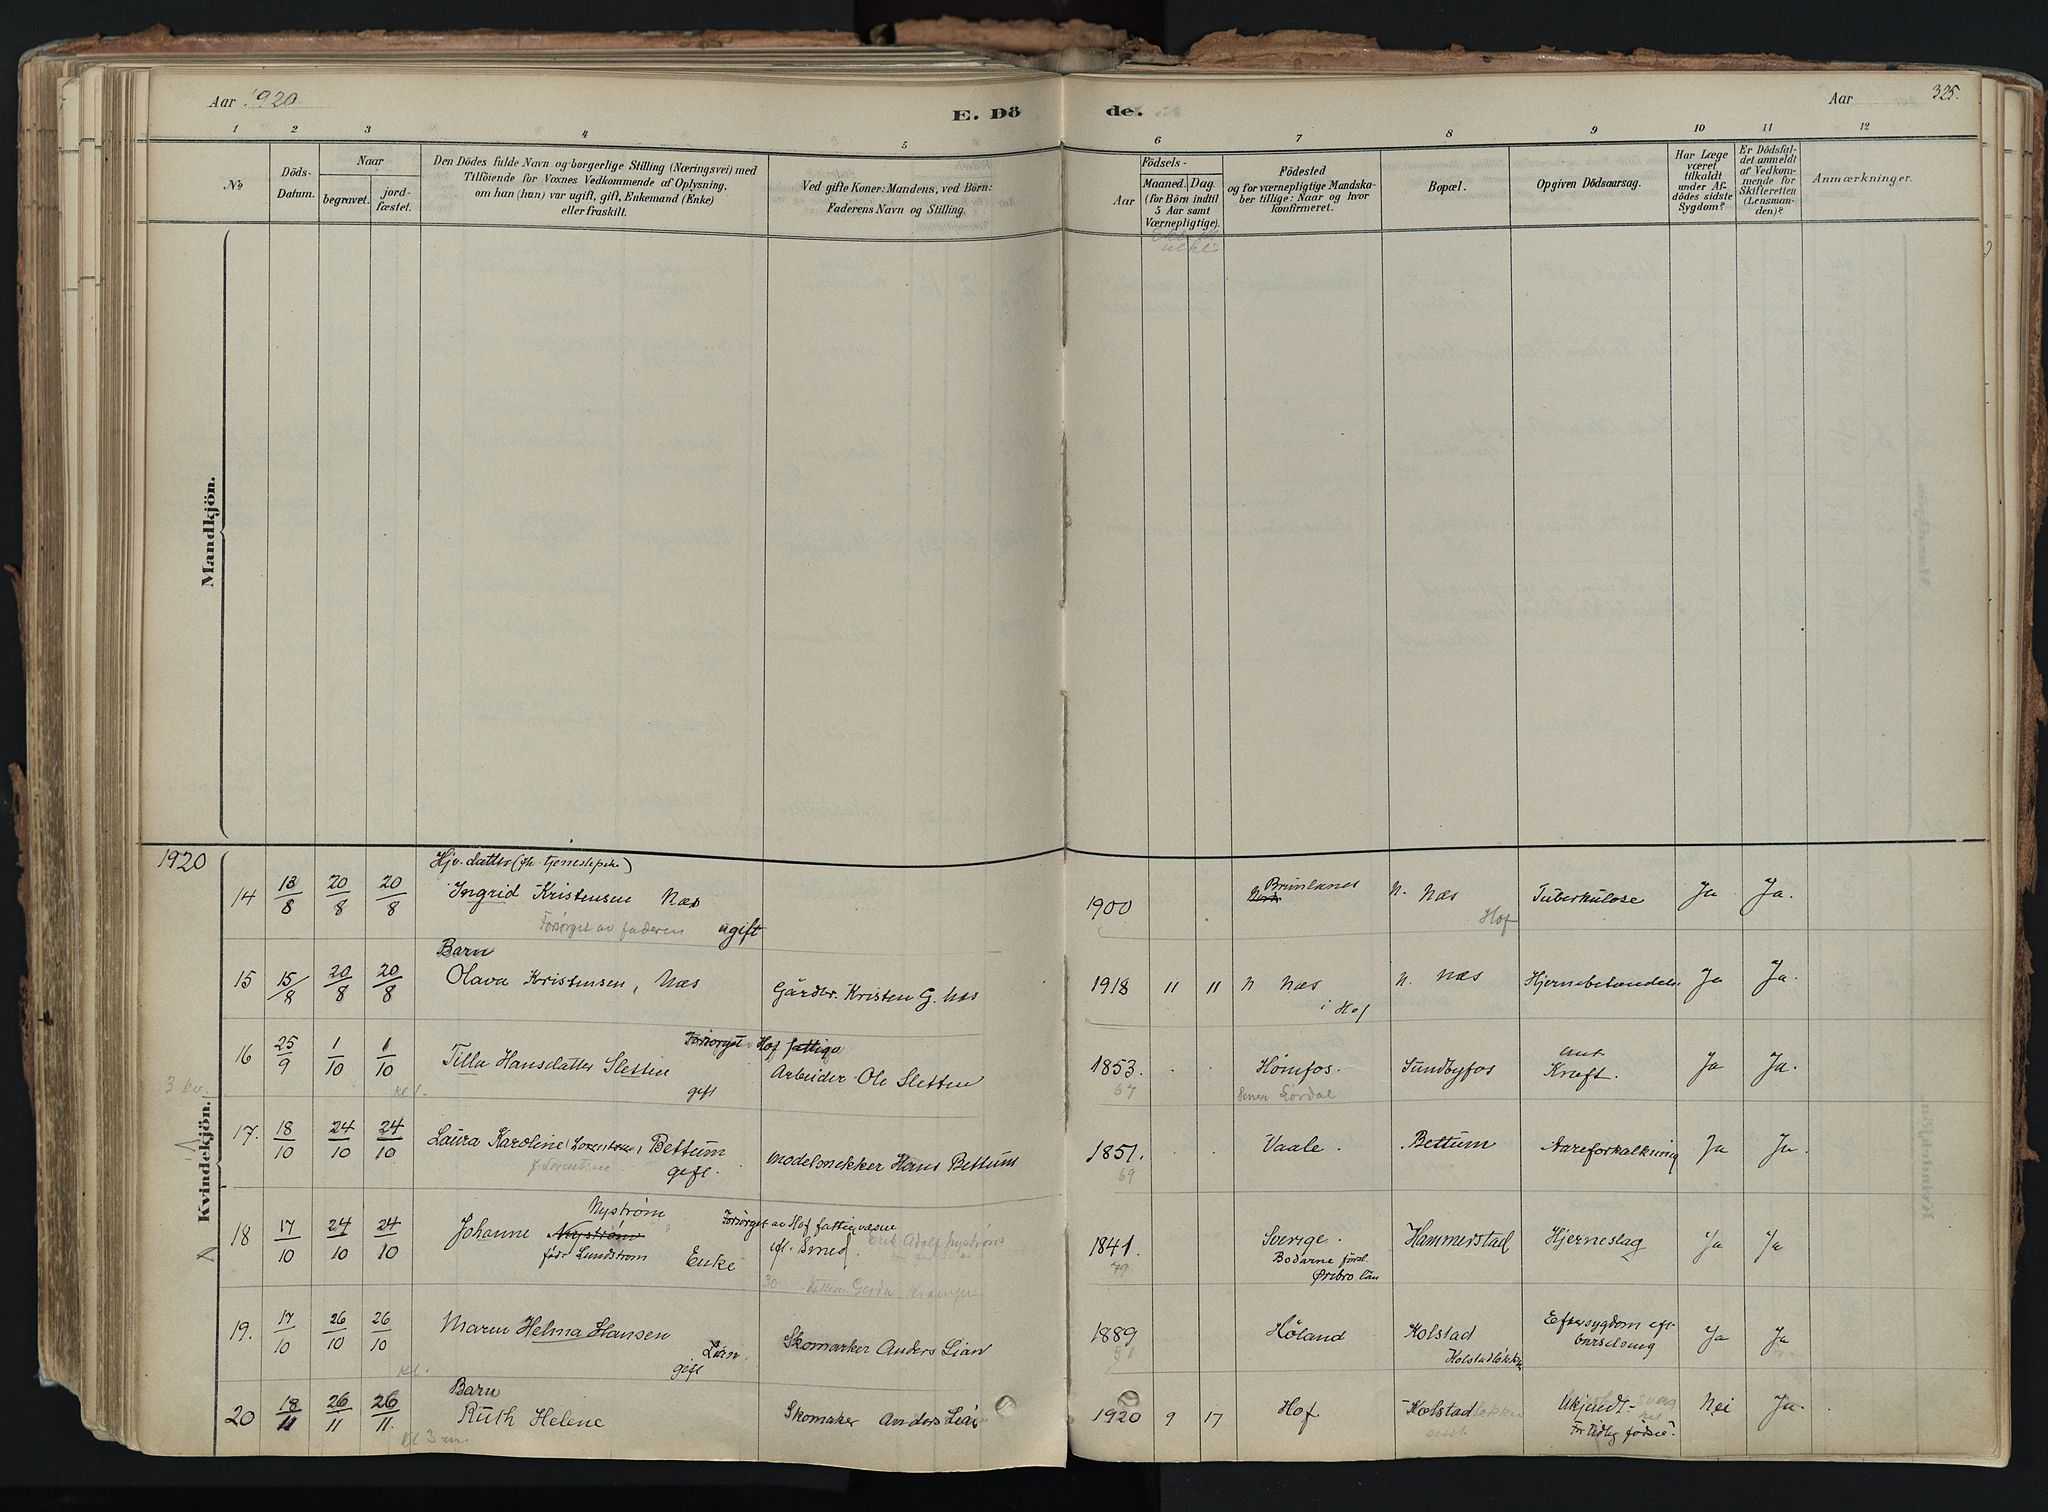 Aar 1920
E. Dö
de.
Aar
325.
1 2 3 4 5 6 7 8 9 10 11 12
No
Döds-
Datum.
Naar
begravet.
jord-
fæstet.
Den Dödes fulde Navn og borgerlige Stilling (Næringsvei) med
Tilföiende for Voxnes Vedkommende af Oplysning,
om han (hun) var ugift, gift, Enkemand (Enke)
eller fraskilt.
Ved gifte Koner: Mandens, ved Börn:
Faderens Navn og Stilling.
Födsels-
Aar
Maaned.
Dag.
(for Börn indtil
5 Aar samt
Værnepligtige).
Födested
og for værnepligtige Mandska-
ber tillige: Naar og hvor
konfirmeret.
Bopæl.
Opgiven Dödsaarsag.
Har Læge
været
tilkaldt
under Af-
dödes sidste
Sygdom?
Er Dödsfal-
det anmeldt
af Vedkom-
mende for
Skifteretten
(Lensman-
den)?
Anmærkninger.
Mandkjön.
1920
Kvindekjön.
3 kv.
Hjv. datter (fh. tjenestepike)
14 13/8 20/8 20/8 Ingrid Kristensen Næs 1900 Brunlanes N. Næs Tuberkulose Ja Ja.
Forsørget av faderen ugift Hof
Barn
15 15/8 20/8 20/8 Olava Kristensen, Næs Gårdbr. Kristen G. Næs 1918 11 11 N Næs N. Næs Hjernebetændelse Ja Ja.
i Hof
Forsørget Hof fattigv
16 25/9 1/10 1/10 Tilla Hansdatter Sletten Arbeider Ole Sletten 1853. Hønnfos. Sundbyfos Ant. Kræft. Ja Ja.
gift 67 Senere Lørdal
17. 18/10 24/10 24/10 Laura Karoline (Lorentsen) Bettum Modelsnekker Hans Bettum 1851. Vaale. Bettum Aareforkalkning Ja Ja.
f. Lorentsen gift. 69
Nystrøm Forsørget av Hof fattigvæsne
18 17/10 24/10 24/10 Johanne Nystrøm efl. Smed Erik Adolf Nystrøm 1841. Sverige. Hammerstad Hjerneslag Ja Ja
født Lundstrøm Enke 79 Bodarne försl.
Örebro län
30 Datteren Gerda
19. 17/10 26/10 26/10 Maren Helma Hansen Skomarker Anders Lian 1889 Høland Kolstad Eftersygdom eft. Ja Ja
Lian, gift Kolstadløkken barselseng
Barn
20 18/11 26/11 26/11 Ruth Helene Skomaker Anders Lian 1920 9 17 Hof. Kolstadløkken Ukjendt - Svaghet Nei Ja.
Kl 3 em. For tidlig fødsel?